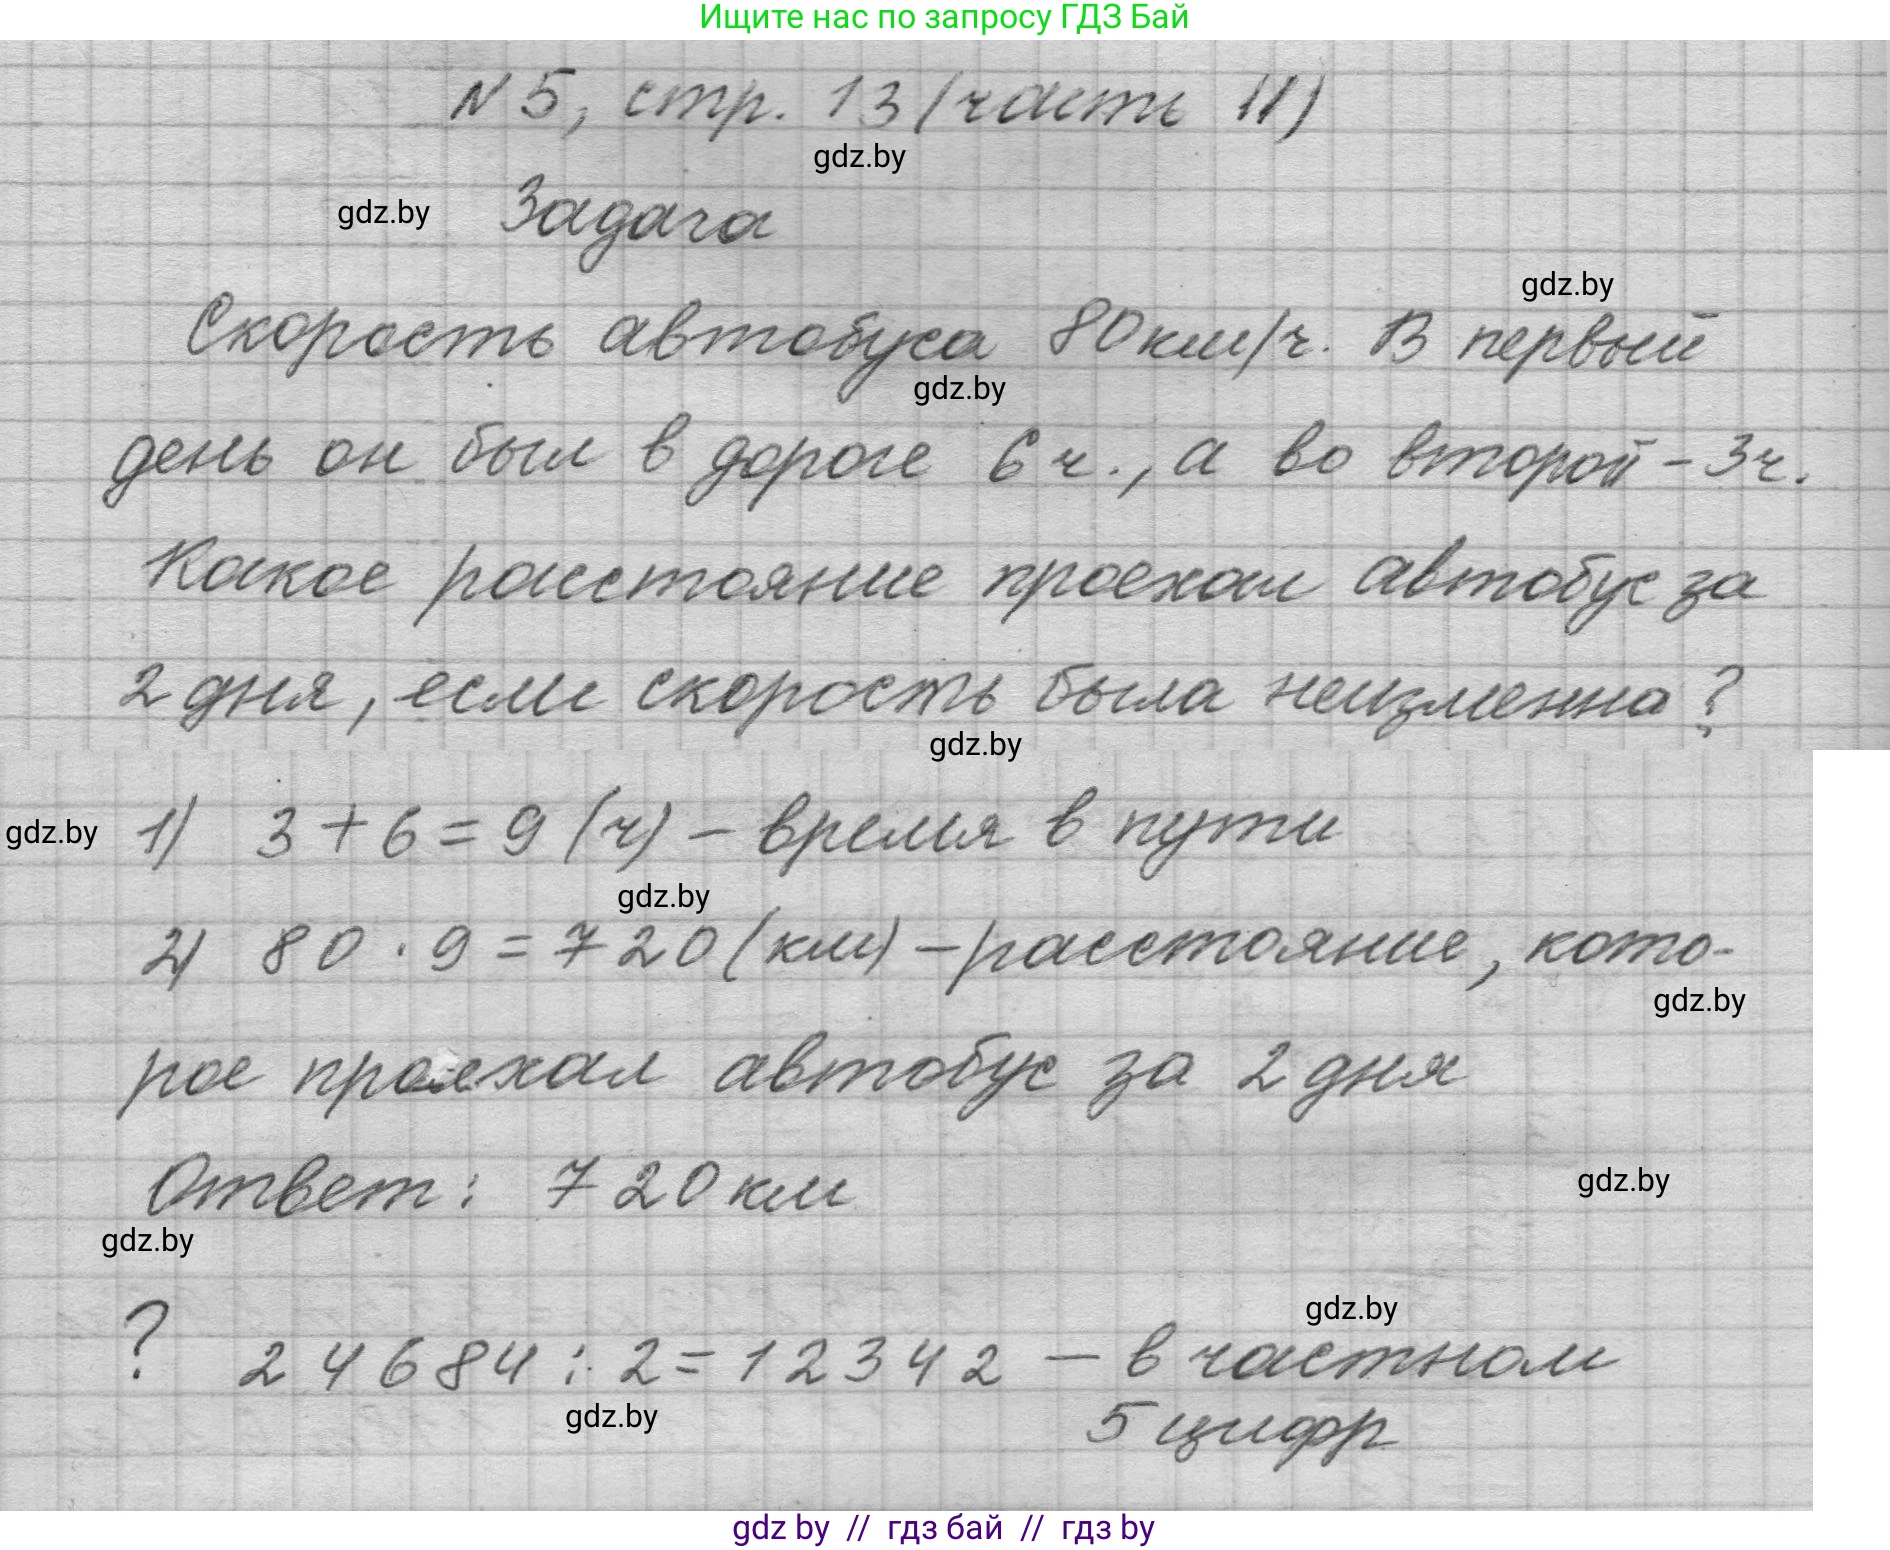 Ищите нас по запросу ГДЗ Бай
N 5, стр. 13 (часть II)
gdz.by
gdz.by Задача
gdz.by
Скорость автобуса 80 км/ч. В первый
gdz.by
день он был в дороге 6 ч., а во второй - 3 ч.
Какое расстояние проехал автобус за
2 дня, если скорость была неизменна?
gdz.by
gdz.by 1) 3 + 6 = 9 (ч) - время в пути
gdz.by
2) 80 · 9 = 720 (км) - расстояние, кото-
gdz.by
рое проехал автобус за 2 дня
Ответ: 720 км
gdz.by
gdz.by
gdz.by
? 24684 : 2 = 12342 - в частном
gdz.by
5 цифр
gdz by // гдз бай // гдз by